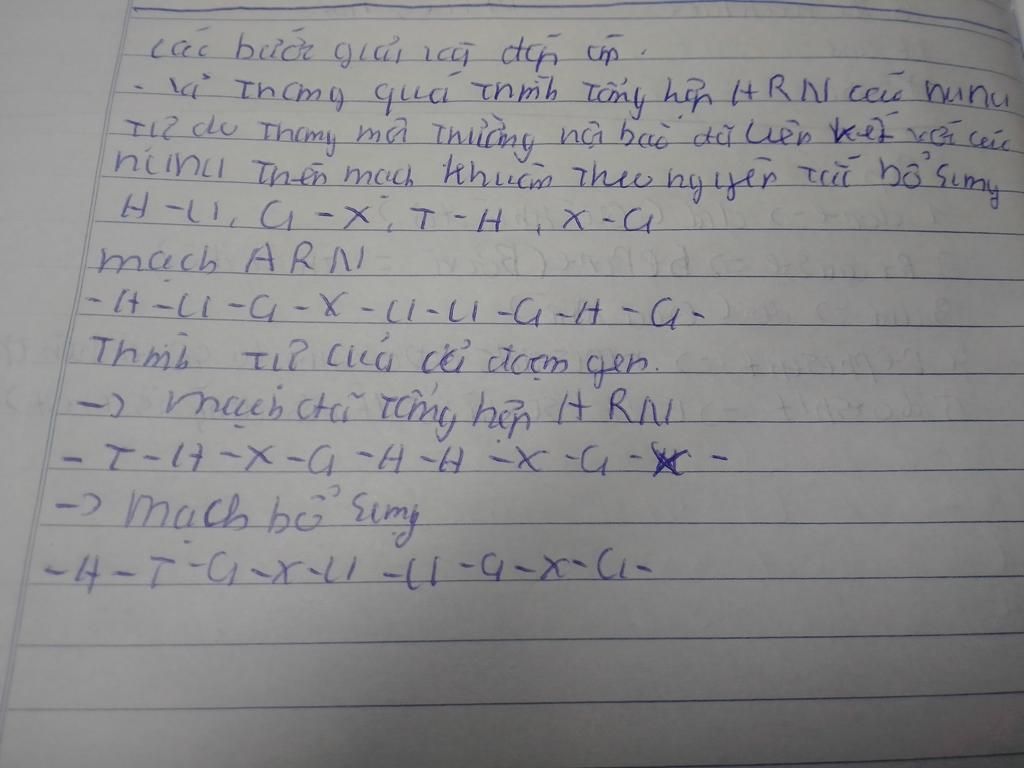 các bước giải và đáp án.
- Vì trong quá trình tổng hợp ARN các nunu
tự do trong môi trường nội bào đã liên kết với các
nunu trên mạch khuôn theo nguyên tắc bổ sung
A - U, G - X, T - A, X - G
mạch ARN
- A - U - G - X - U - U - G - A - G -
Trình tự của cả đoạn gen.
-> mạch đã tổng hợp ARN
- T - A - X - G - A - A - X - G - X -
-> mạch bổ sung
- A - T - G - X - U - U - G - X - G -